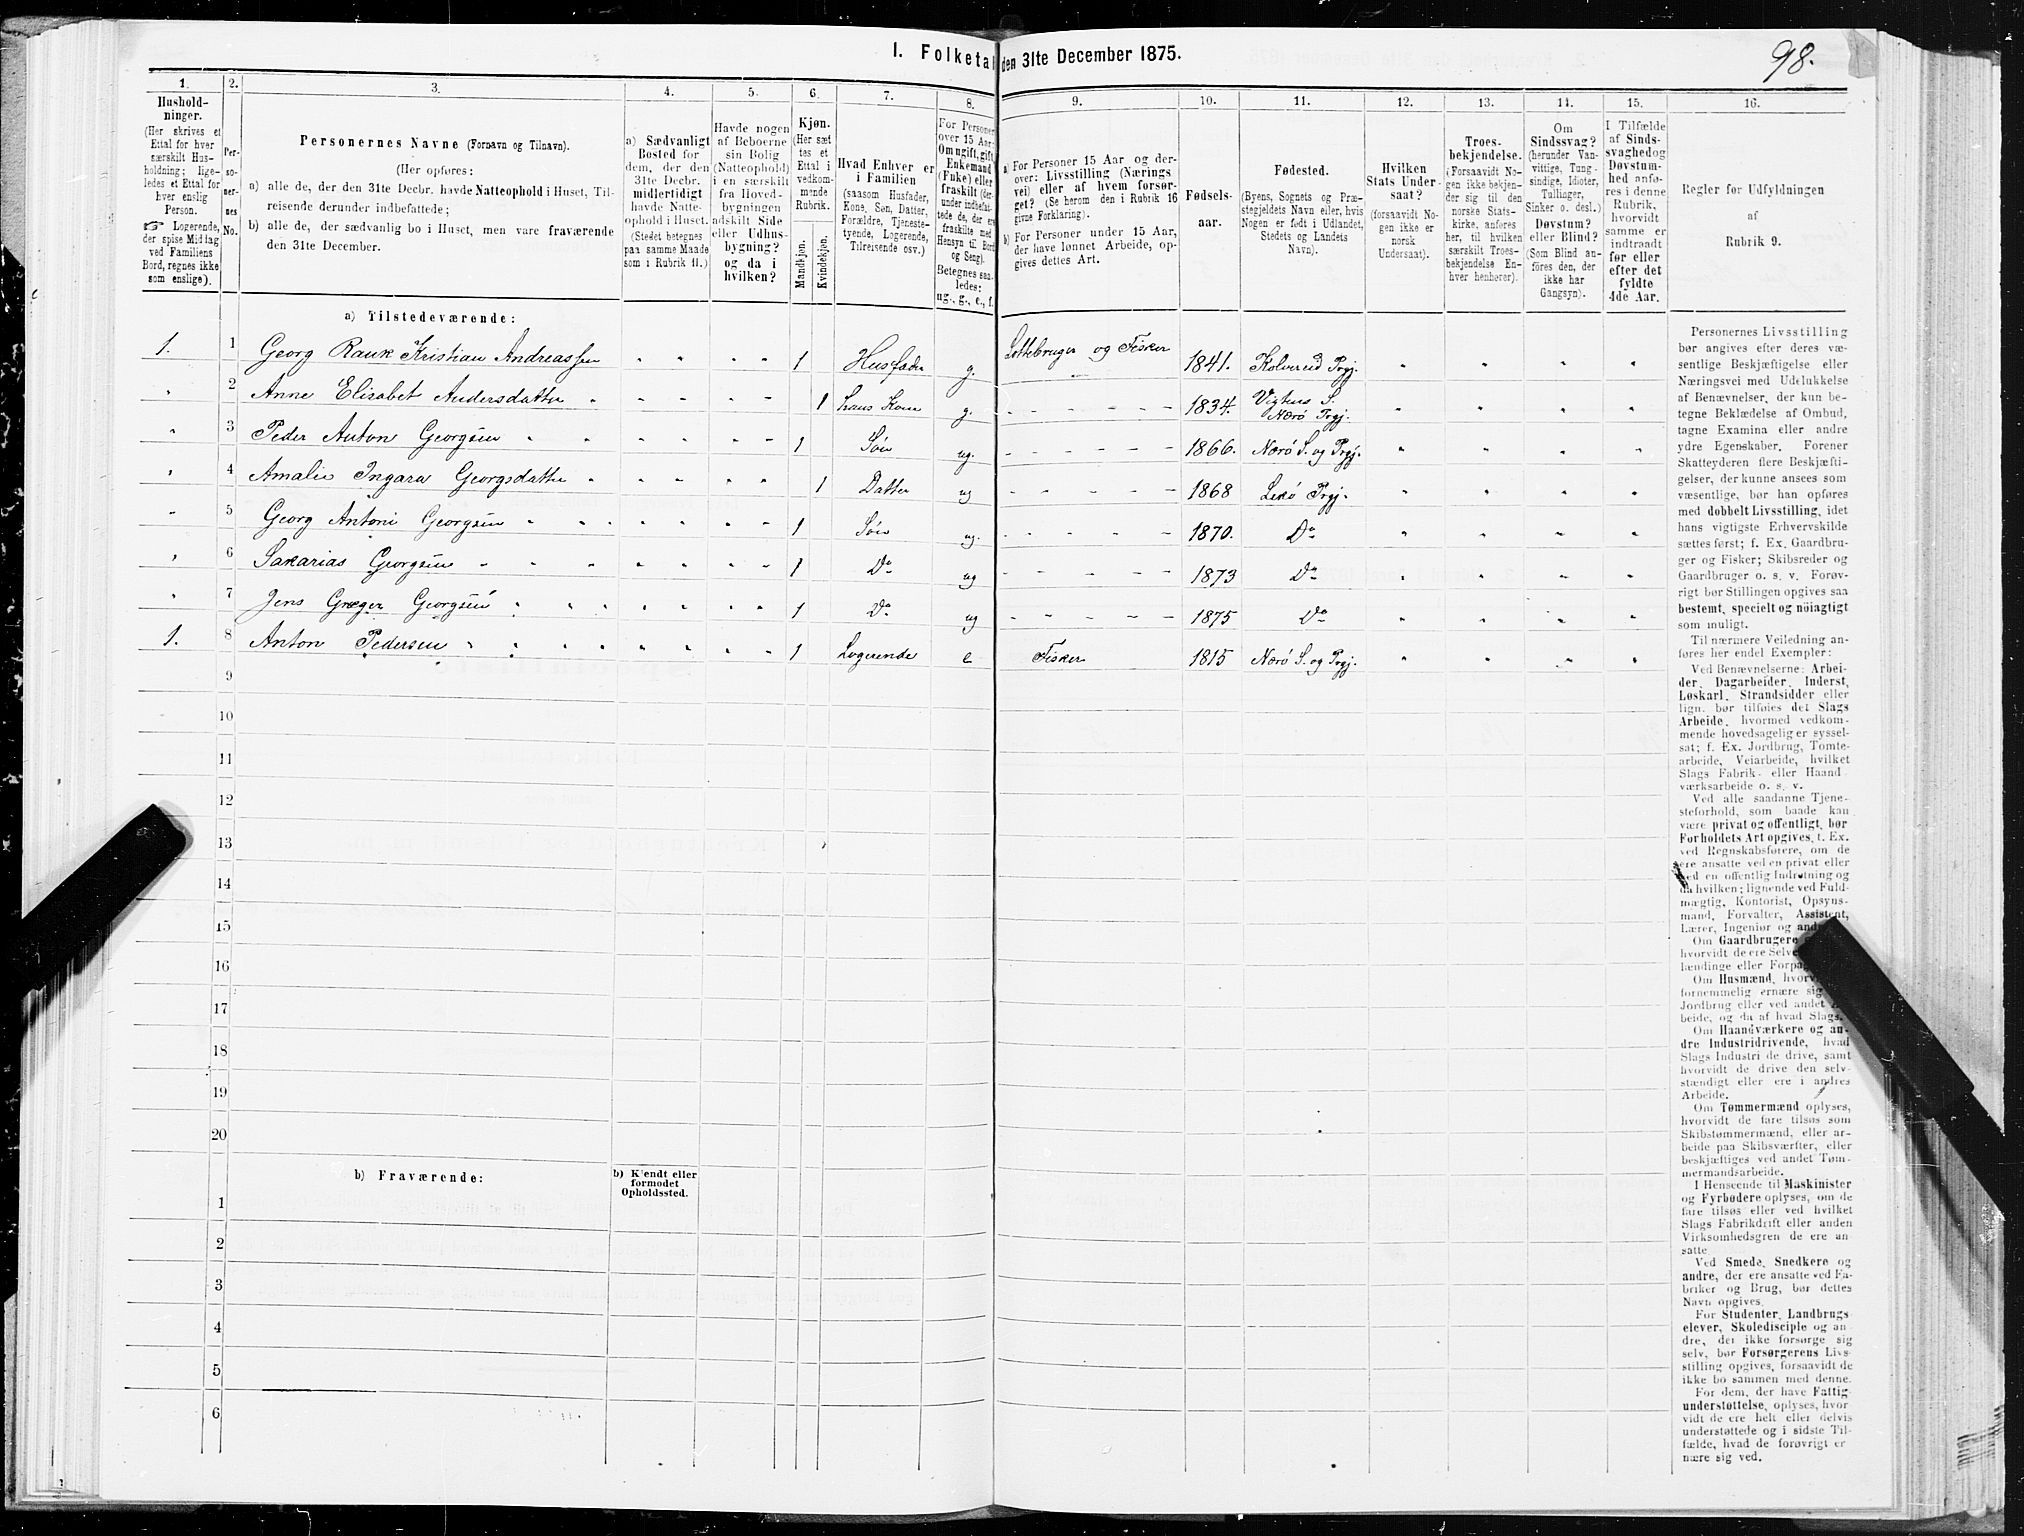 98.
I. Folketal den 31te December 1875.
1. 2. 3. 4. 5. 6. 7. 8. 9. 10. 11. 12. 13. 14. 15. 16.
Hushold-
ninger.
(Her skrives et
Ettal for hver
særskilt Hus-
holdning; lige-
ledes et Ettal for
hver enslig
Person.
☞ Logerende,
der spise Middag
ved Familiens
Bord, regnes ikke
som enslige).
Per-
so-
ner-
nes
No.
Personernes Navne (Fornavn og Tilnavn).
(Her opføres:
a) alle de, der den 31te Decbr. havde Natteophold i Huset, Til-
reisende derunder indbefattede;
b) alle de, der sædvanlig bo i Huset, men vare fraværende
den 31te December.
a) Sædvanligt
Bosted for
dem, der den
31te Decbr.
midlertidigt
havde Natte-
ophold i Huset.
(Stedet betegnes
paa samme Maade
som i Rubrik 11.)
Havde nogen
af Beboerne
sin Bolig
(Natteophold)
i en særskilt
fra Hoved-
bygningen
adskilt Side
eller Udhus-
bygning?
og da i
hvilken?
Kjøn.
(Her sæt
tes et
Ettal i
vedkom-
mende
Rubrik.
Mandkjøn.
Kvindekjøn.
Hvad Enhver er
i Familien
(saasom Husfader,
Kone, Søn, Datter,
Forældre, Tjeneste-
tyende, Logerende,
Tilreisende osv.)
For Personer
over 15 Aar:
Om ugift, gift,
Enkemand
(Enke) eller
fraskilt (der-
under indbefat-
tede de, der ere
fraskilte med
Hensyn til Bord
og Seng).
Betegnes saa-
ledes:
ug., g., e., f.
a) For Personer 15 Aar og der-
over: Livsstilling (Nærings
vei) eller af hvem forsør-
get? (Se herom den i Rubrik 16
givne Forklaring).
b) For Personer under 15 Aar,
der have lønnet Arbeide, op-
gives dettes Art.
Fødsels-
aar.
Fødested.
(Byens, Sognets og Præ-
stegjeldets Navn eller, hvis
Nogen er født i Udlandet,
Stedets og Landets
Navn).
Hvilken
Stats Under-
saat?
(forsaavidt No-
gen ikke er
norsk
Undersaat).
Troes-
bekjendelse.
(Forsaavidt No-
gen ikke bekjen-
der sig til den
norske Stats-
kirke, anføres
her, til hvilken
særskilt Troes-
bekjendelse En-
hver henhører).
Om
Sindssvag?
(herunder Van-
vittige, Tung-
sindige, Idioter,
Tullinger,
Sinker o. desl.)
Døvstum?
eller Blind?
(Som Blind an-
føres den, der
ikke har
Gangsyn).
I Tilfælde
af Sinds-
svaghed og
Døvstum-
hed anfø-
res i denne
Rubrik,
hvorvidt
samme er
indtraadt
før eller
efter det
fyldte
4de Aar.
Regler før Udfyldningen
af
Rubrik 9.
a) Tilstedeværende:
1. 1 Georg Rauk Kristian Andreassen " " " " 1 Husfader g. Lottebruger og Fisker 1841. Kolvereid Prgj. " " " "
" 2 Anne Elisabet Andersdatter " " " " 1 hans Kone g. - - - - - 1834. Vigtens S. Nærø Prgj. " " " "
" 3 Peder Anton Georgsen " " " " 1 Søn ug. - - - - - 1866. Nærø S. og Prgj. " " " "
" 4 Amalie Ingara Georgsdatter " " " " 1 Datter ug - - - - - 1868 Lekø Prgj. " " " "
" 5 Georg Antoni Georgsen " " " " 1 Søn ug. - - - - - 1870. Do " " " "
" 6 Sakarias Georgsen " " " " 1 Do ug - - - - - 1873 Do " " " "
" 7 Jens Græger Georgsen " " " " 1 Do ug - - - - - 1875 Do " " " "
1. 8 Anton Pedersen " " " " 1 Logerende e Fisker 1815 Nærø S. og Prgj. " " " "
9
10
11
12
13
14
15
16
17
18
19
20
b) Fraværende:
b) Kjendt eller
formodet
Opholdssted.
1
2
3
4
5
6
Personernes Livsstilling
bør angives efter deres væ-
sentlige Beskjæftigelse eller
Næringsvei med Udelukkelse
af Benævnelser, der kun be-
tegne Beklædelse af Ombud,
tagne Examina eller andre
ydre Egenskaber. Forener
Skatteyderen flere Beskjæfti-
gelser, der kunne ansees som
væsentlige, bør han opføres
med dobbelt Livsstilling, idet
hans vigtigste Erhvervskilde
sættes først; f. Ex. Gaardbru-
ger og Fisker; Skibsreder og
Gaardbruger o. s. v. Forøv-
rigt bør Stillingen opgives saa
bestemt, specielt og nöiagtigt
som muligt.
Til nærmere Veiledning an-
føres her endel Exempler:
Ved Benævnelserne: Arbei-
der, Dagarbeider, Inderst,
Løskarl, Strandsidder eller
lign. bør tilføies det Slags
Arbeide, hvormed vedkom-
mende hovedsagelig er syssel-
sat; f. Ex. Jordbrug, Tomte-
arbeide, Veiarbeide, hvilket
Slags Fabrik- eller Haand-
værksarbeide o. s. v.
Ved alle saadanne Tjene-
steforhold, som baade kan
være privat og offentligt, bør
Forholdets Art opgives, f. Ex.
ved Regnskabsførere, om de
ere ansatte ved en privat eller
ved en offentlig Indretning og
da hvilken; lignende ved Fuld-
mægtig, Kontorist, Opsyns-
mand, Forvalter, Assistent,
Lærer, Ingeniør og
Om Gaardbrugere
hvorvidt de ere
lændinge eller
Om Husmænd,
fornemmelig ernære sig
Jordbrug eller ved andet
beide, og da af hvad Slags.
Om Haandværkere og an-
dre Industridrivende, hvad
Slags Industri de drive, samt
hvorvidt de drive den selv-
stændigt eller ere i andres
Arbeide.
Om Tømmermænd oplyses,
hvorvidt de fare tilsøs som
Skibstømmermænd, eller ar-
beide paa Skibsværfter, eller
beskjæftiges ved andet Tøm-
mermandsarbeide.
I Henseende til Maskinister
og Fyrbødere oplyses, om de
fare tilsøs eller ved hvilket
Slags Fabrikdrift eller anden
Virksomhedsgren de ere an-
satte
Ved Smede, Snedkere og
andre, der ere ansatte ved Fa-
briker og Brug, bør dettes
Navn opgives.
For Studenter, Landbrugs
elever, Skoledisciple og an-
dre, der ikke forsørge sig
selv, bør Forsørgerens Livs-
stilling opgives, forsaavidt de
ikke bo sammen med denne.
For dem, der have Fattig-
understøttelse, oplyses, hvor-
vidt de ere helt eller delvis
understøttede og i sidste Til-
fælde, hvad de forøvrigt er
nære sig ved.